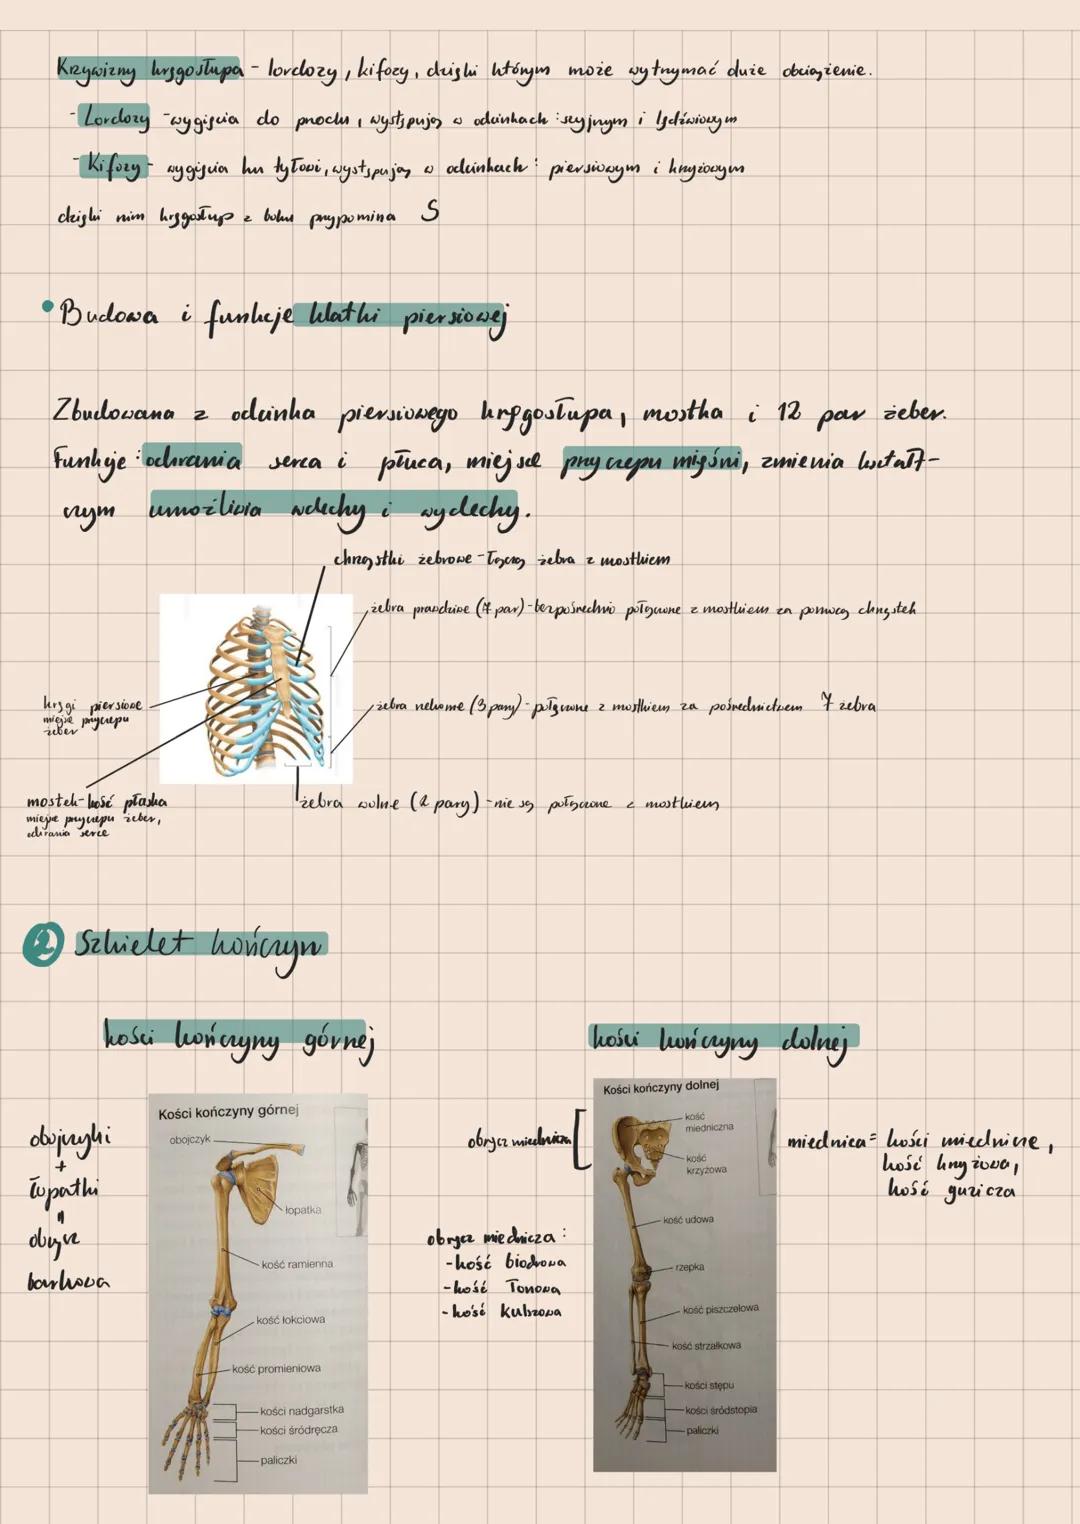 Krzywizny kręgosłupa - lordozy, kifozy, dzięki którym może wytrzymać duże obciążenie.
- Lordozy - wygięcia do przodu, występują w odcinkach: szyjnym i lędźwiowym
- Kifozy - wygięcia ku tyłowi, występują w odcinkach: piersiowym i krzyżowym
dzięki nim kręgosłup z boku przypomina S
• Budowa i funkcje klatki piersiowej
Zbudowana z odcinka piersiowego kręgosłupa, mostka i 12 par żeber.
Funkcje: ochrania serca i płuca, miejsce przyczepu mięśni, zmienia kształt-
czym umożliwia wdechy i wydechy.
chrząstki żebrowe - łączą żebra z mostkiem
żebra prawdziwe (7 par) - bezpośrednio połączone z mostkiem za pomocą chrząstek
kręgi piersiowe
miejsce przyczepu
żeber
żebra rzekome (3 pary) - połączone z mostkiem za pośrednictwem 7 żebra
mostek - kość płaska
miejsce przyczepu żeber,
ochrania serce
żebra wolne (2 pary) - nie są połączone z mostkiem
2 Szkielet kończyn
kości kończyny górnej
kości kończyny dolnej
obojczyki
+
łopatki
=
obręcz
barkowa
Kości kończyny górnej
obojczyk
łopatka
kość ramienna
kość łokciowa
kość promieniowa
kości nadgarstka
kości śródręcza
paliczki
obręcz miedniczna
obręcz miednicza:
- kość biodrowa
- kość łonowa
- kość kulszowa
Kości kończyny dolnej
kość
miedniczna
kość
krzyżowa
kość udowa
rzepka
kość piszczelowa
kość strzałkowa
kości stępu
kości śródstopia
paliczki
miednica = kości miedniczne,
kość krzyżowa,
kość guzicza